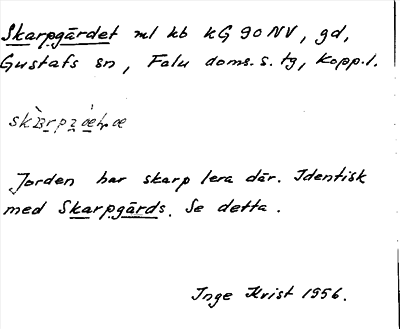 Skarpgärdet ml kb kG 90 NV, gd,
Gustafs sn, Falu doms. s. tg, Kopp. l.
Jorden har skarp lera där. Identisk
med Skarpgärds. Se detta.
Inge Kvist 1956.